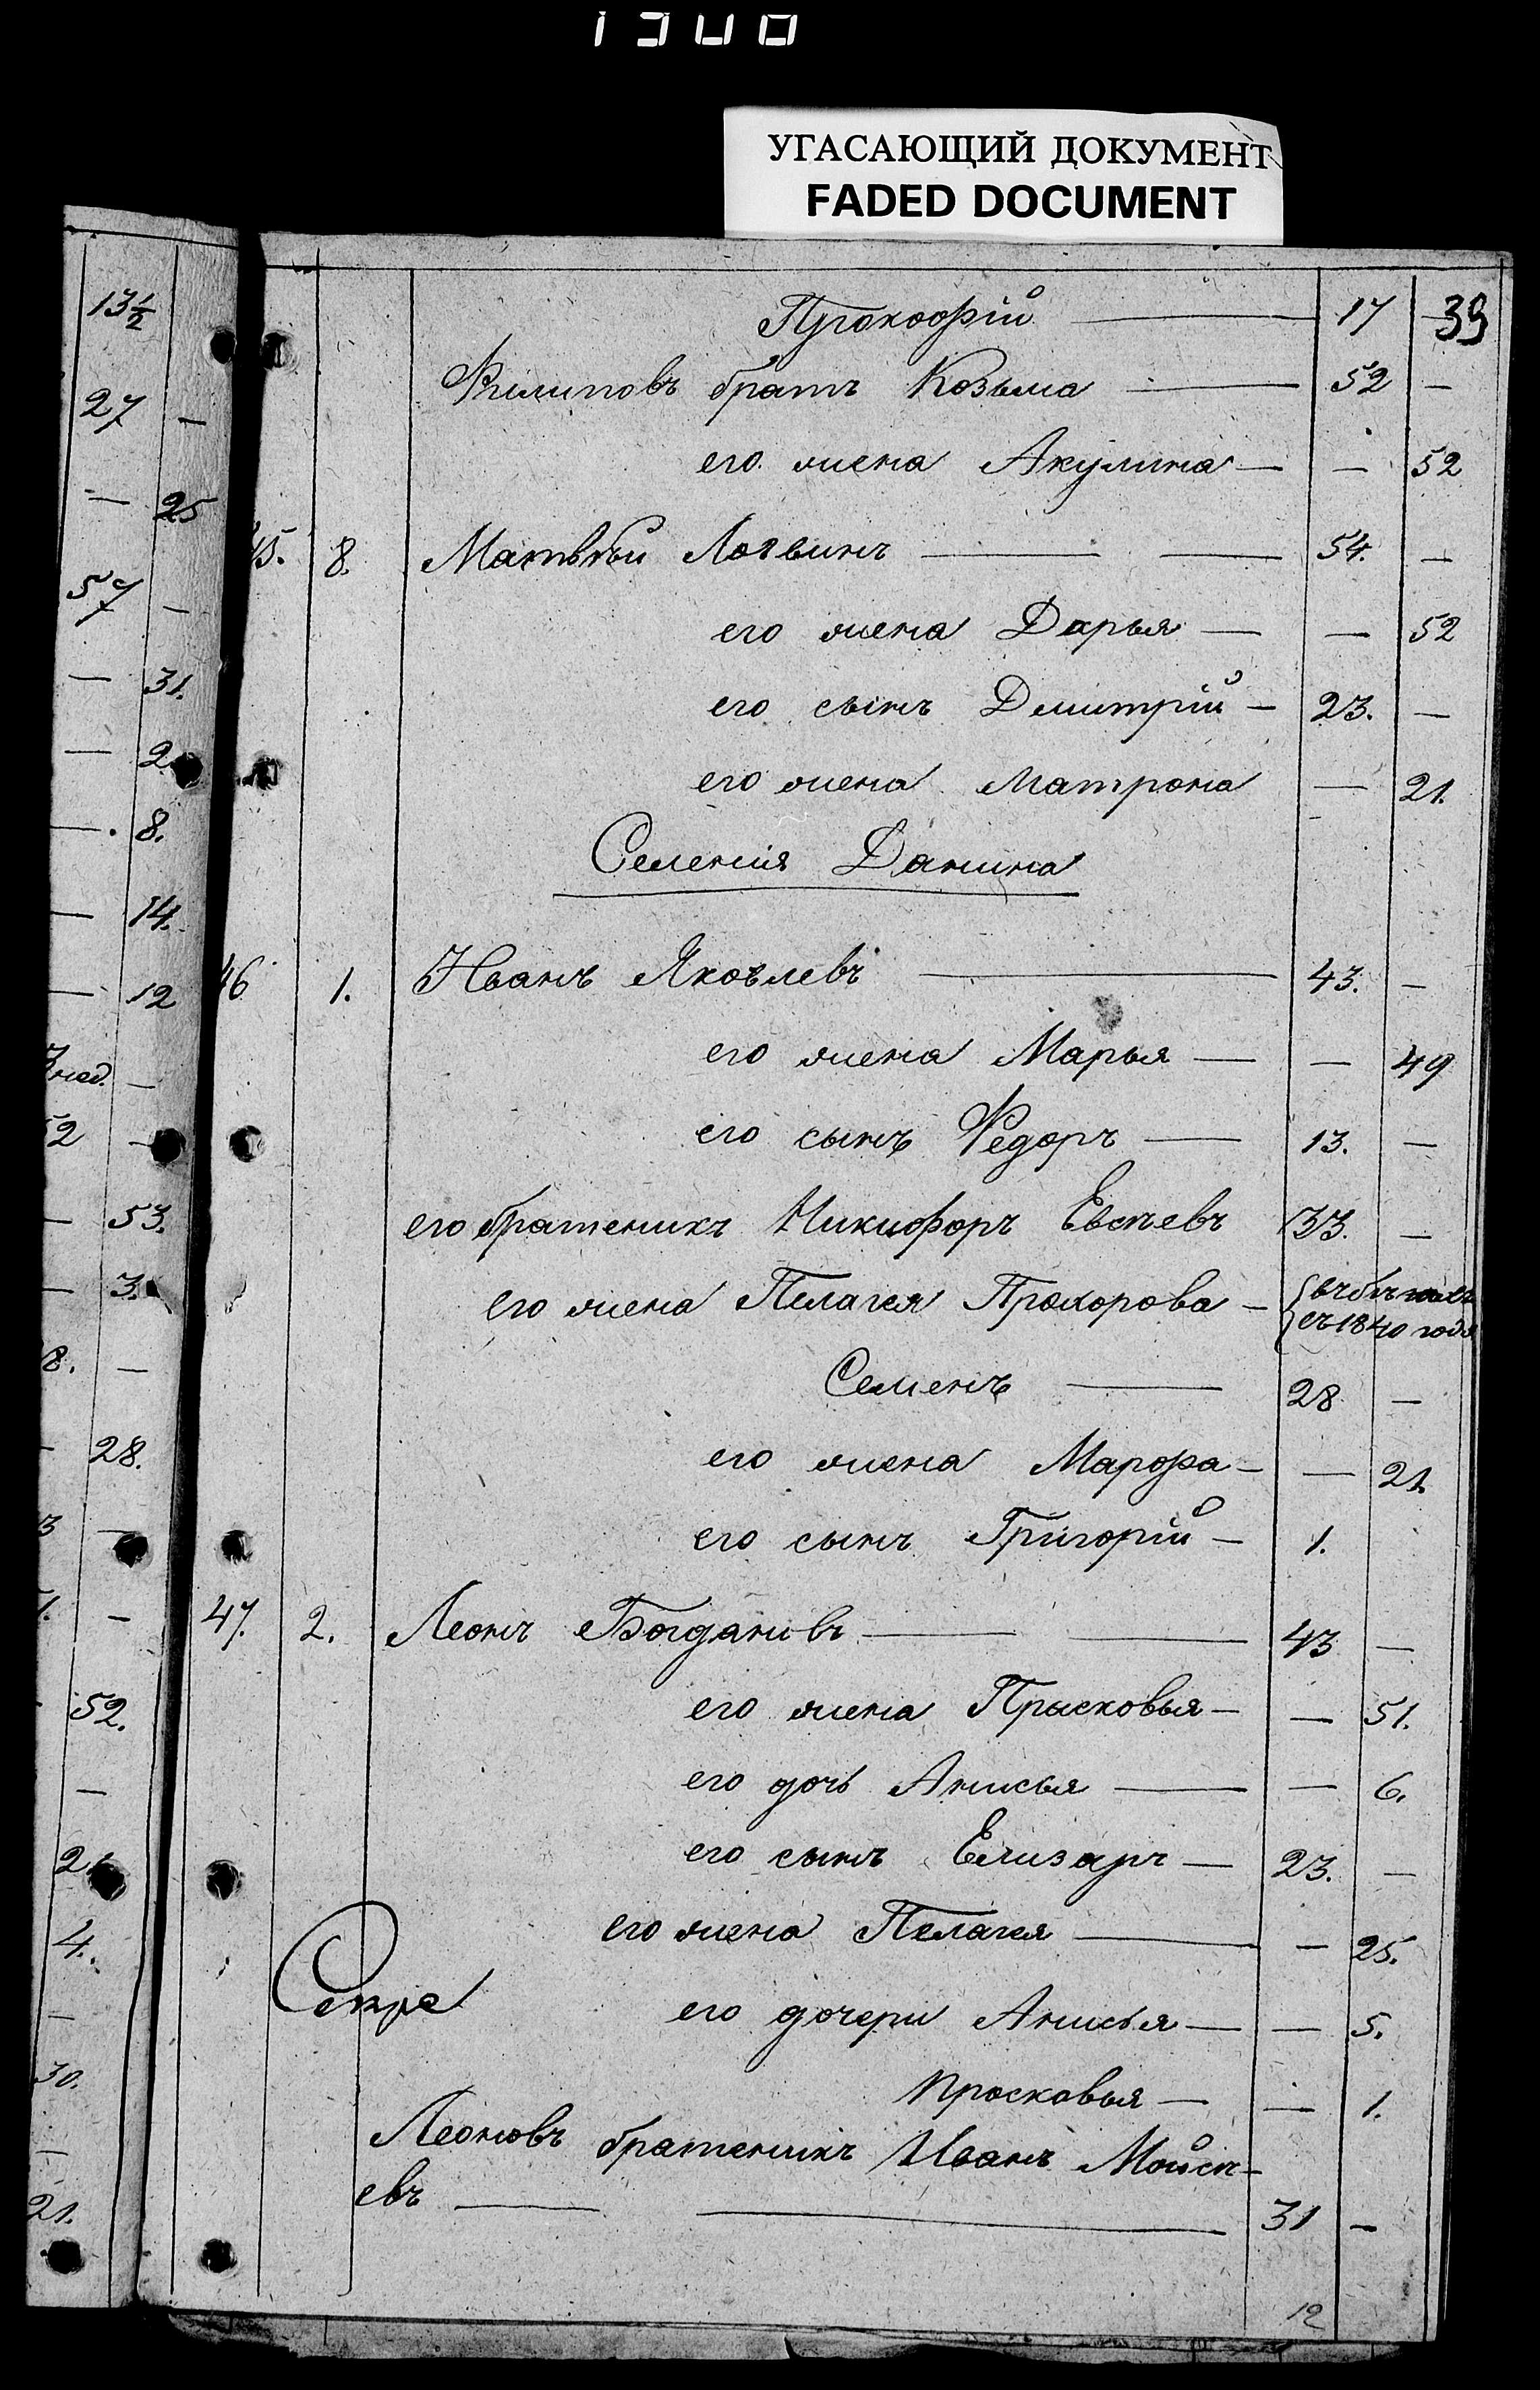 1300
УГАСАЮЩИЙ ДОКУМЕНТ
FADED DOCUMENT
39
Прокофій — 17
Филиповъ братъ Козьма — 52 —
его жена Акулина — — 52
45. 8. Матвѣй Логвинъ — 54. —
его жена Дарья — — 52
его сынъ Дмитрій — 23. —
его жена Матрона — 21.
Селенія Данина
46 1. Иванъ Яковлевъ — 43. —
его жена Марья — — 49
его сынъ Федоръ — 13. —
его братеникъ Никифоръ Евсѣевъ 33. —
его жена Пелагея Прохорова — въ бѣгахъ
съ 1840 года
Семенъ — 28 —
его жена Марфа — — 21.
его сынъ Григорій — 1.
47. 2. Леонъ Богдановъ — 43 —
его жена Прасковья — — 51.
его дочь Анисья — — 6.
его сынъ Елизаръ — 23. —
его жена Пелагея — — 25.
Секре
его дочери Анисья — — 5.
Просковья — — 1.
Леоновъ братеникъ Иванъ Мойсѣ-
евъ — 31 —
12
13½
27 —
— 25
57 —
— 31.
— 2.
— 8.
— 14.
— 12
нед. —
52 —
— 53.
— 3.
8. —
— 28.
3 —
1. —
52.
—
2.
4.
—
30.
—
21.